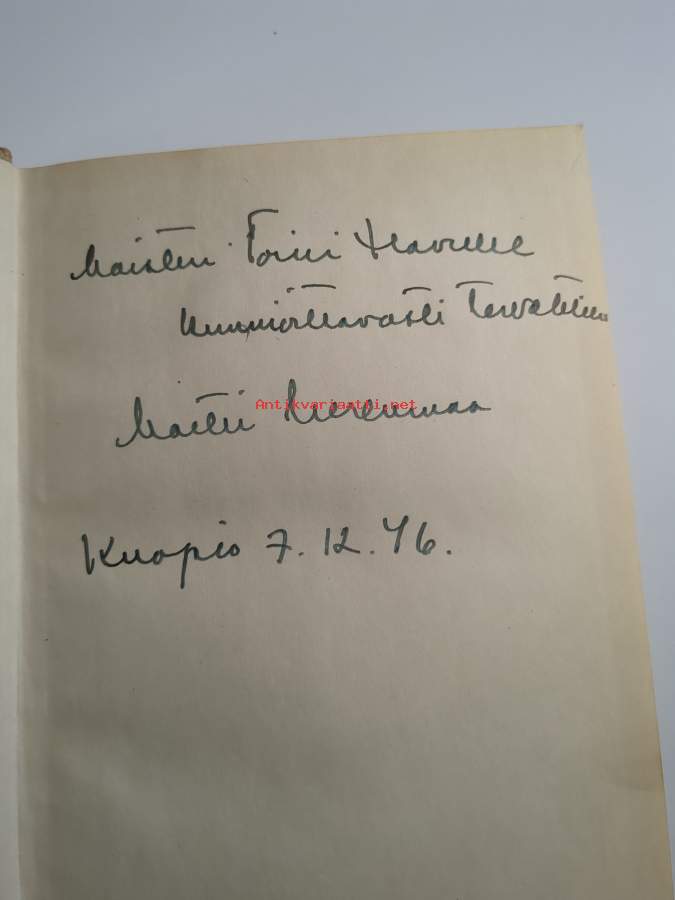 Maisteri Toini Havulle
kunnioittavasti tervehtien
Martti Merenmaa
Antikvariaatti.net
Kuopio 7.12.46.